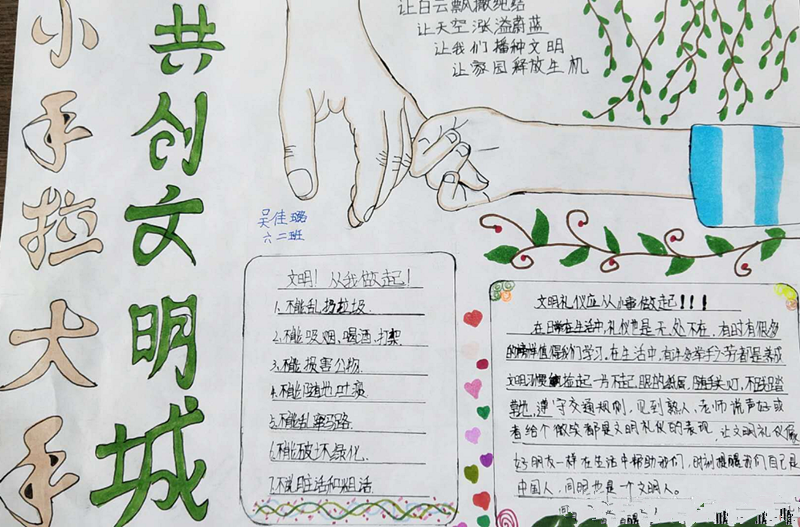 小手拉大手
共创文明城
让白云飘撒纯洁
让天空涨溢蔚蓝
让我们播种文明
让家园释放生机
吴佳璐
六二班
文明！从我做起！
1.不能乱扔垃圾
2.不能吸烟、喝酒、打架
3.不能损害公物
4.不能随地吐痰
5.不能乱穿马路
6.不能破坏绿化
7.不说脏话和粗话
文明礼仪应从小事做起！！！
在日常生活中,礼仪也是无处不在,有时有很多
的榜样值得我们学习,在生活中,有许多举手之劳都是养成
文明习惯,捡起一片不起眼的纸屑,随手关灯,不践踏
草地,遵守交通规则,见到熟人、老师说声好或
者给个微笑都是文明礼仪的表现,让文明礼仪像
好朋友一样在生活中帮助我们,时刻提醒我们自己是
中国人,同时也是一个文明人。